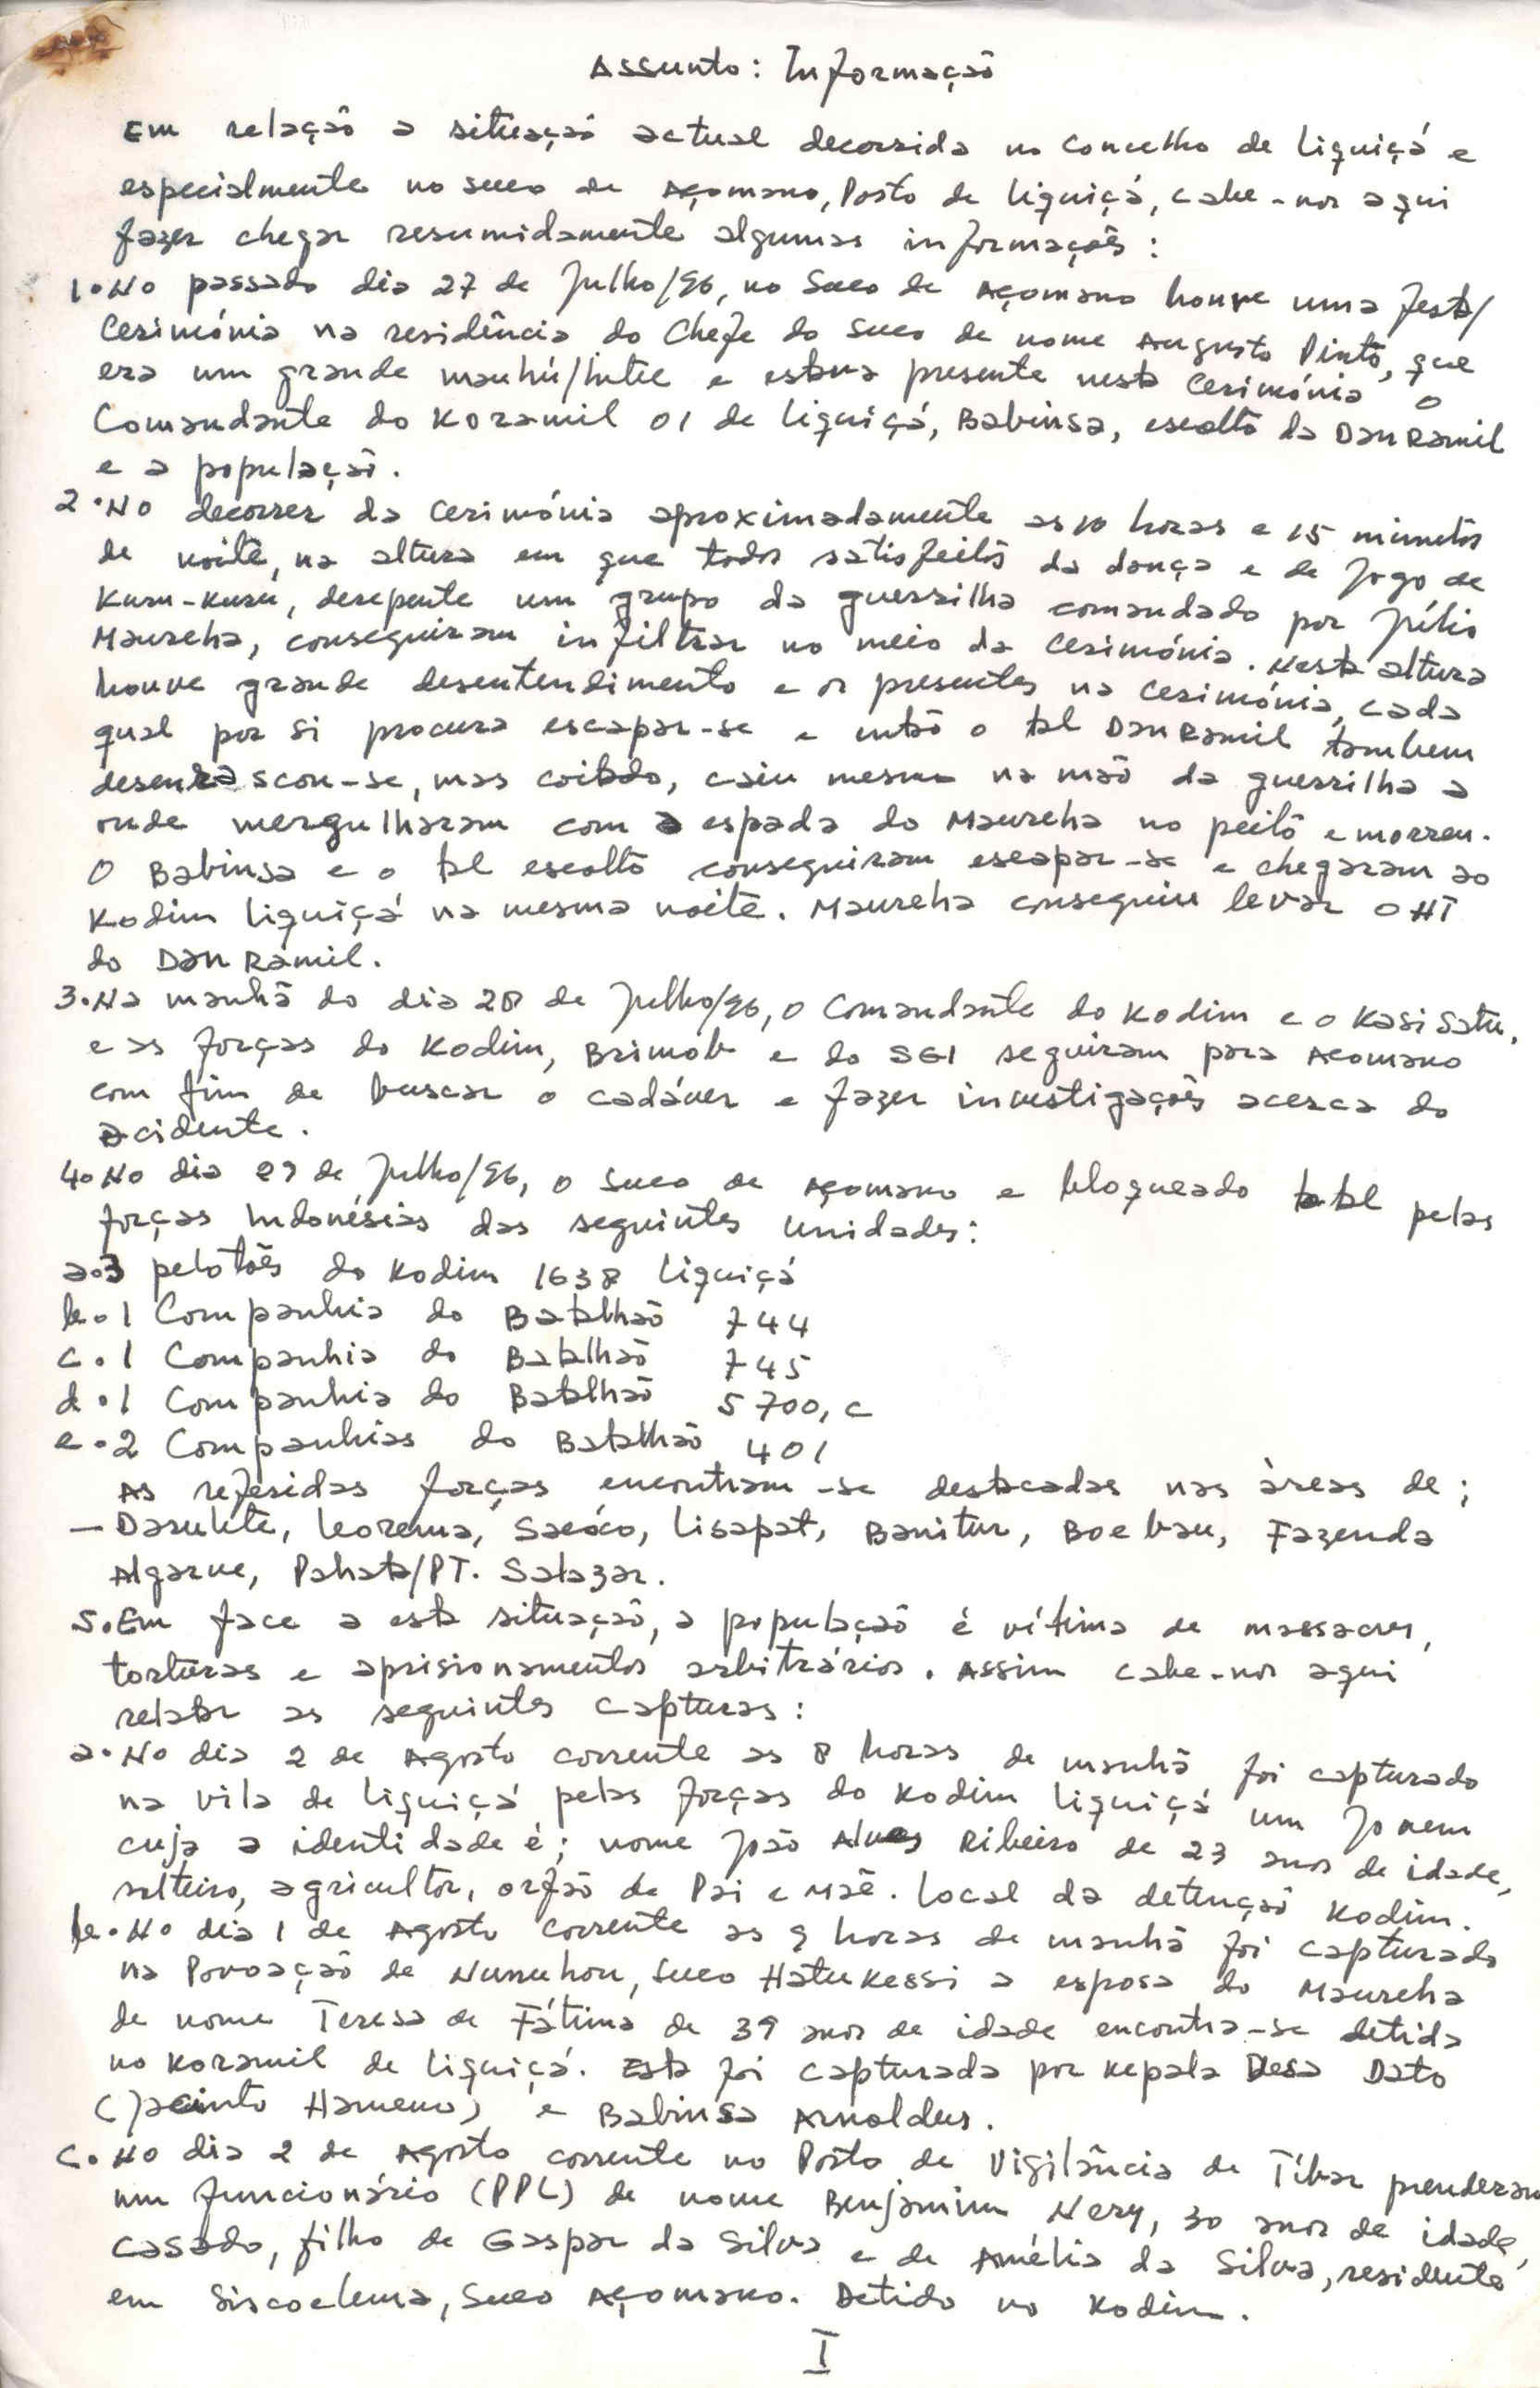 Assunto: Informação
Em relação a situação actual decorrida no Concelho de Liquiçá e
especialmente no suco de Açomano, Posto de Liquiçá, cabe-nos aqui
fazer chegar resumidamente algumas informações:
1. No passado dia 27 de Julho/96, no Suco de Açomano houve uma festa/
Cerimónia na residência do Chefe do Suco de nome Augusto Pinto, que
era um grande mauhú/Intel e estava presente nesta Cerimónia o
Comandante do Koramil 01 de Liquiçá, Babinsa, escolta da DanRamil
e a população.
2. No decorrer da Cerimónia aproximadamente as 10 horas e 15 minutos
de noite, na altura em que todos satisfeitos da dança e de Jogo de
Kuru-Kuru, derepente um grupo da guerrilha comandado por Júlio
Maureha, conseguiram infiltrar no meio da Cerimónia. Nesta altura
houve grande desentendimento e os presentes na Cerimónia, cada
qual por si procura escapar-se e então o tal DanRamil tambem
desenrascou-se, mas coitado, caiu mesmo na mão da guerrilha a
onde mergulharam com a espada do Maureha no peito e morreu.
O Babinsa e o tal escolta conseguiram escapar-se e chegaram ao
Kodim Liquiçá na mesma noite. Maureha conseguiu levar o HT
do DanRamil.
3. Na manhã do dia 28 de Julho/96, o Comandante do Kodim e o Kasi Satu,
e as forças do Kodim, Brimob e do SGI seguiram para Açomano
com fim de buscar o cadáver e fazer investigações acerca do
acidente.
4. No dia 29 de Julho/96, o Suco de Açomano e bloqueado total pelas
forças Indonésias das seguintes Unidades:
a. 3 pelotões do Kodim 1638 Liquiçá
b. 1 Companhia do Batalhão 744
c. 1 Companhia do Batalhão 745
d. 1 Companhia do Batalhão 5700, c
e. 2 Companhias do Batalhão 401
As referidas forças encontram-se destacadas nas àreas de;
- Darulete, Leorema, Lisapat, Banitur, Boebau, Fazenda
Algarve, Pahata/PT. Salazar.
5. Em face a esta situação, a população é vítima de massacres,
torturas e aprisionamentos arbitrários. Assim cabe-nos aqui
relatar as seguintes capturas:
a. No dia 2 de Agosto corrente as 8 horas de manhã foi capturado
na vila de Liquiçá pelas forças do Kodim Liquiçá um Jovem
cuja a identidade é; nome João Alves Ribeiro de 23 anos de idade,
solteiro, agricultor, orfão de Pai e Mãe. Local da detenção Kodim.
b. No dia 1 de Agosto corrente as 9 horas de manhã foi capturado
na Povoação de Nunuhou, Suco Hatukessi a esposa do Maureha
de nome Teresa de Fátima de 39 anos de idade encontra-se detida
no Koramil de Liquiçá. Esta foi capturada por Kepala Desa Dato
(Jacinto Hameno) e Babinsa Arnoldus.
c. No dia 2 de Agosto corrente no Posto de Vigilância de Tíbar prenderam
um funcionário (PPL) de nome Benjamim Nery, 30 anos de idade,
casado, filho de Gaspar da Silva e de Amélia da Silva, residente
em Siscoelema, Suco Açomano. Detido no Kodim.
I